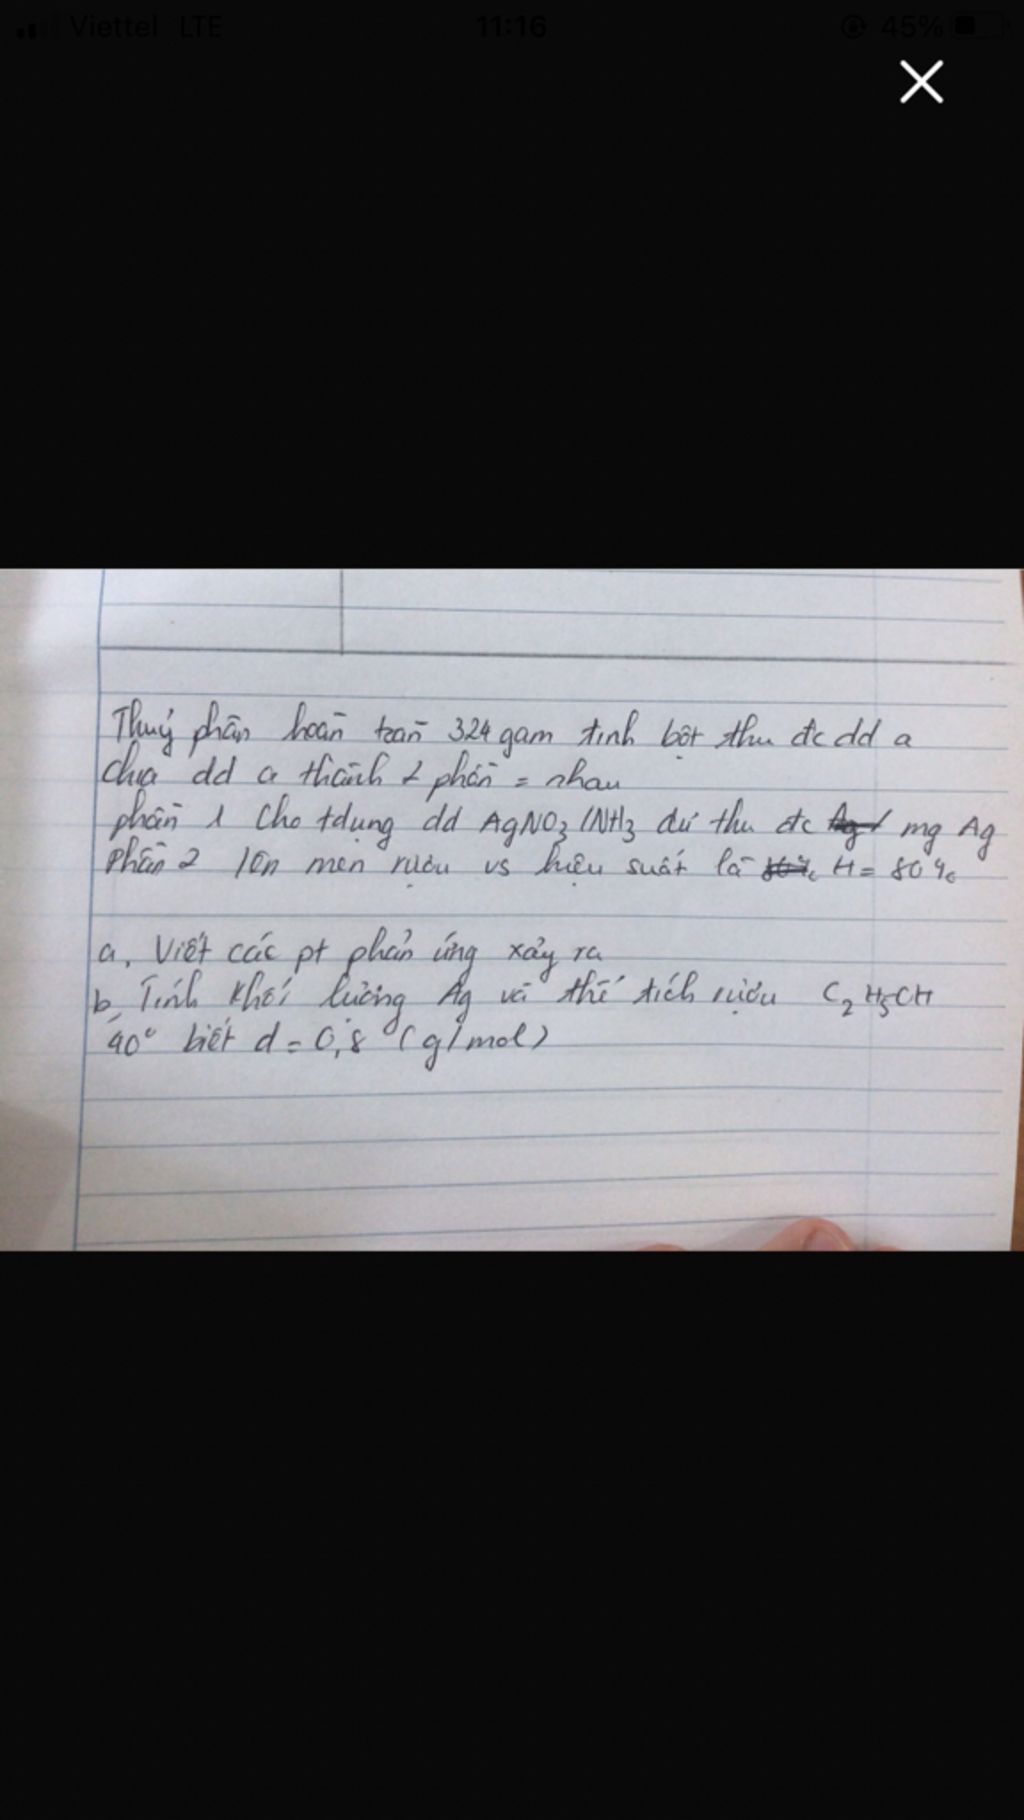 Viettel LTE 11:16 45%
Thuỷ phân hoàn toàn 324 gam tinh bột thu đc dd a
Chia dd a thành 2 phần = nhau
phần 1 Cho tdụng dd AgNO3/NH3 dư thu đc mg Ag
Phần 2 lên men rượu vs hiệu suất là H = 80%
a, Viết các pt phản ứng xảy ra
b, Tính khối lượng Ag và thể tích rượu C2H5OH
40° biết d = 0,8 (g/mol)